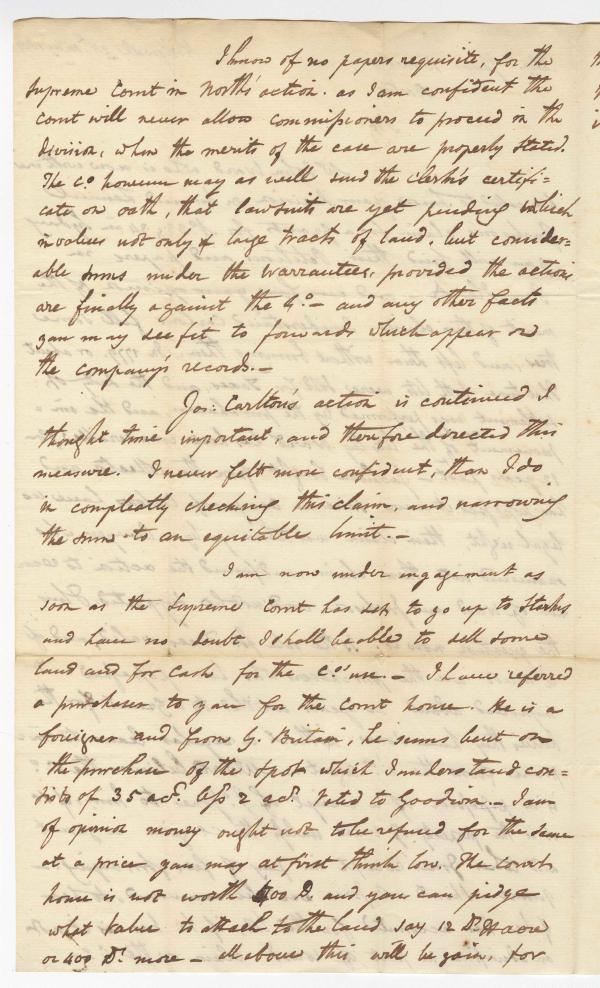 I know of no papers requisite, for the
supreme Court in North's action. as I am confident the
court will never allow commissioners to proceed in the
division, when the merits of the case are properly stated.
The Co. however may as well send the clerk's certifi=
cate on oath, that lawsuits are yet pending which
involves not only large tracts of land, but consider=
able sums under the warrantees, provided the actions
are finally against the Co. – and any other facts
you may see fit to forwards which appear on
the company's records. –
Jos: Carlton's action is continued I
thought time important, and therefore directed this
measure. I never felt more confident, than I do
in compleatly checking this claim, and narrowing
the sum to an equitable limit. –
I am now under ingagement as
soon as the Supreme Court has set to go up to Starks
and have no doubt I shall be able to sell some
land and for cash for the Co.' use. – I have referred
a purchaser to you for the Court house. He is a
foreigner and from G. Britain, he seems bent on
the purchase of the spot which I understand con=
sists of 35 acs. less 2 acs. Voted to Goodwin. – I am
of opinion money ought not to be refused for the same
at a price you may at first think low. The court
house is not worth 400 D. and you can judge
what value to attach to the land say 12 Ds. acre
or 400 Ds. more – all above this will be gain, for